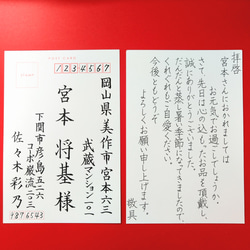 1234567
岡山県美作市宮本六三
武蔵マンション一〇一
宮本 将基様
下関市彦島五二六
コーポ巌流二〇三
佐々木彩乃
9876543
拝啓
宮本さんにおかれましては
お元気でお過ごしでしょうか。
さて、先日は心の込もったお品を頂戴し、
誠にありがとうございます。
だんだんと蒸し暑い季節になってきましたので、
くれぐれもご自愛ください。
今後ともどうぞ
よろしくお願い申し上げます。
敬具